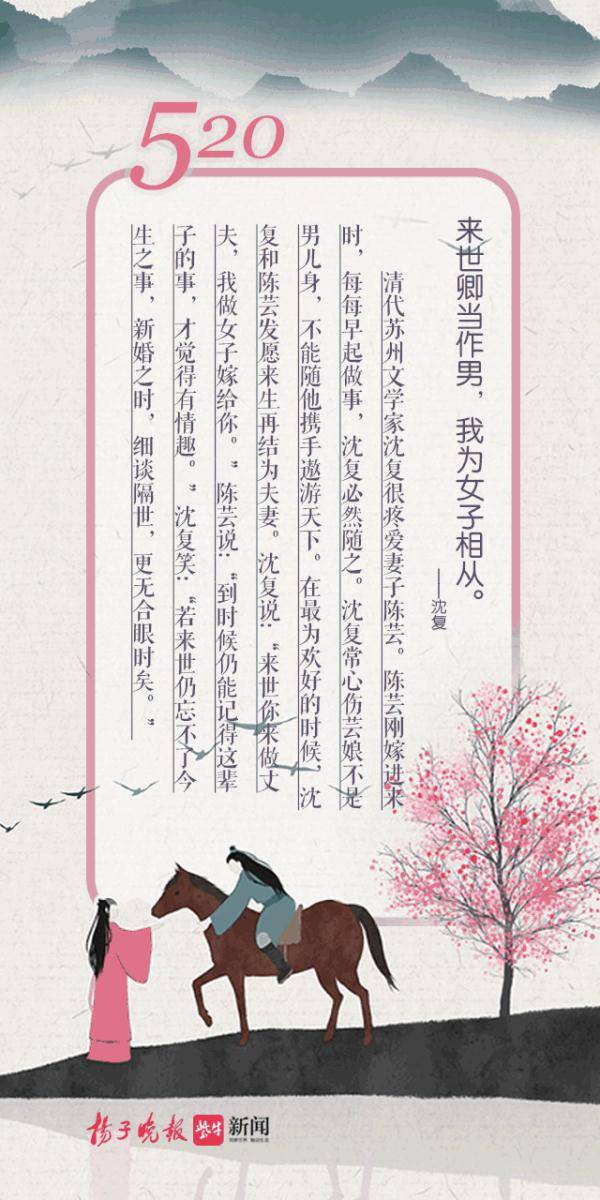 520
来世卿当作男，我为女子相从。
——沈复
清代苏州文学家沈复很疼爱妻子陈芸。陈芸刚嫁进来
时，每每早起做事，沈复必然随之。沈复常心伤芸娘不是
男儿身，不能随他携手遨游天下。在最为欢好的时候，沈
复和陈芸发愿来生再结为夫妻。沈复说：“来世你来做丈
夫，我做女子嫁给你。”陈芸说：“到时候仍能记得这辈
子的事，才觉得有情趣。”沈复笑：“若来世仍忘不了今
生之事，新婚之时，细谈隔世，更无合眼时矣。”
扬子晚报 紫牛 新闻